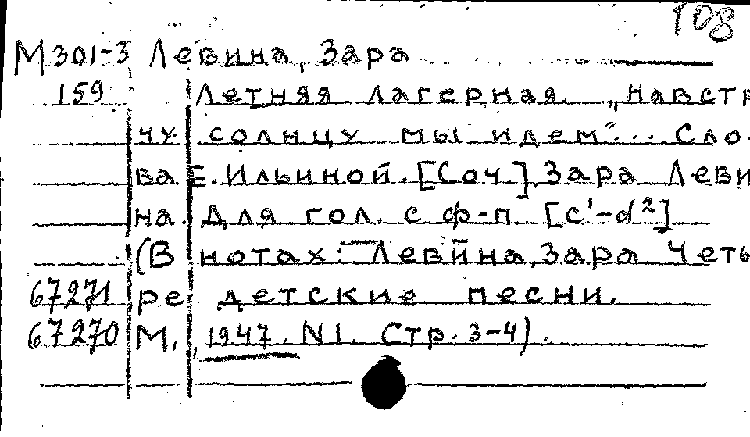 108
М301-3 Левина, Зара
159 Летняя лагерная. „Навстр
чу солнцу мы идем"... Сло-
ва Е. Ильиной. [Соч.] Зара Леви
на. Для гол. с ф-п. [c'-d²]
(В нотах: Левина, Зара Четы
67271 ре детские песни.
67270 М., 1947. N1. Стр. 3-4).